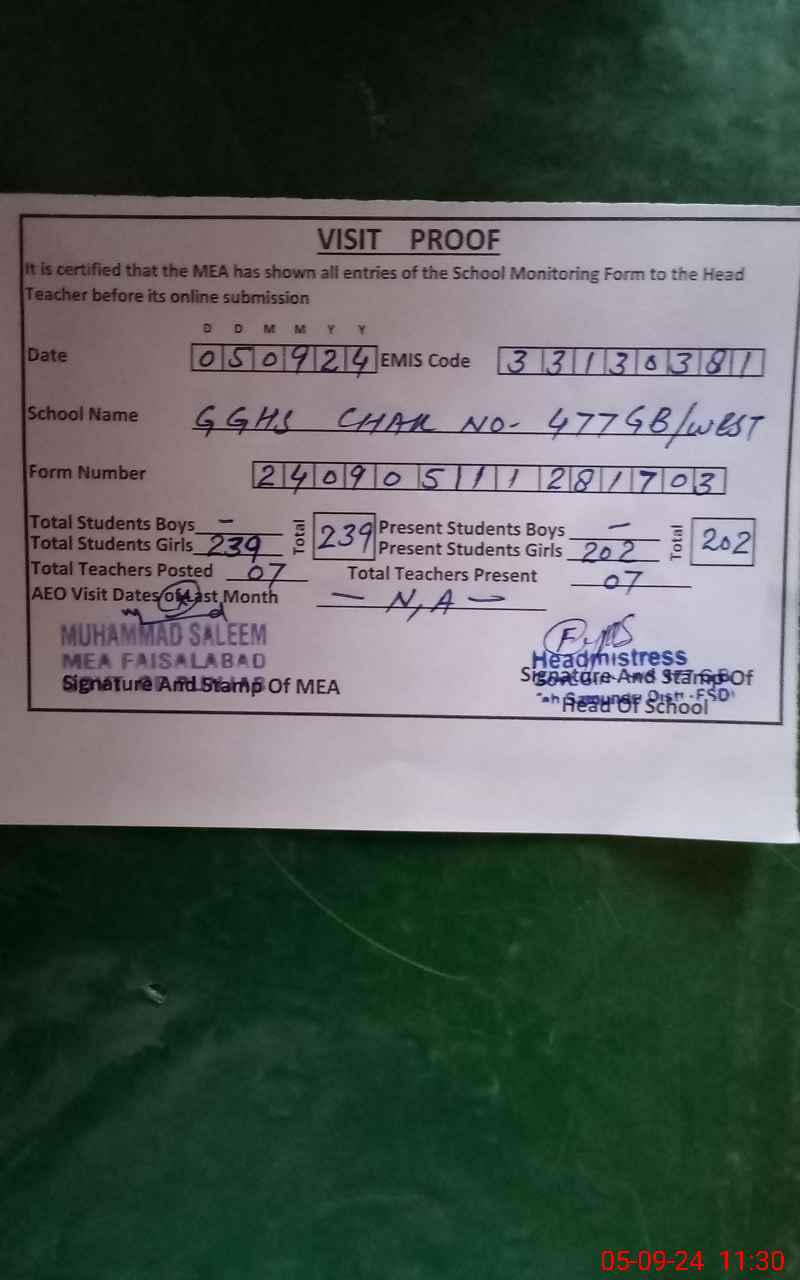 VISIT PROOF
It is certified that the MEA has shown all entries of the School Monitoring Form to the Head
Teacher before its online submission
D D M M Y Y
Date 050924 EMIS Code 33130381
School Name GGHS CHAK NO- 477GB/WEST
Form Number 240905111281703
Total Students Boys - Total 239 Present Students Boys - Total 202
Total Students Girls 239 Present Students Girls 202
Total Teachers Posted 07 Total Teachers Present 07
AEO Visit Dates of Last Month - N,A -
MUHAMMAD SALEEM
MEA FAISALABAD
Signature And Stamp Of MEA
Headmistress
Signature And Stamp Of
Head Of School
05-09-24 11:30